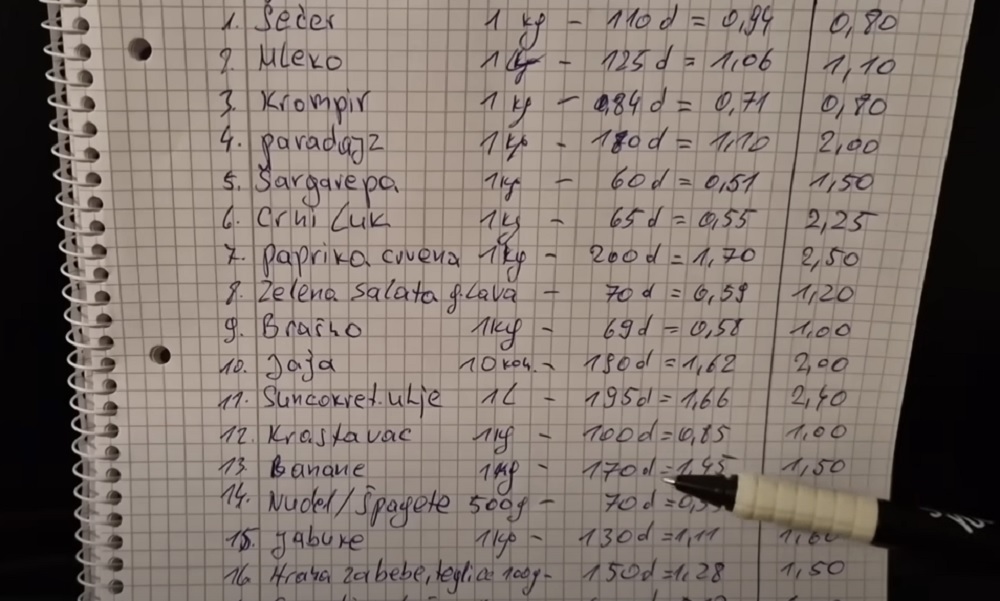 1. Šećer 1 kg - 110 d = 0,94 0,80
2. Mleko 1 - 125 d = 1,06 1,10
3. Krompir 1 kg - 84 d = 0,71 0,80
4. paradajz 1 kg - 130 d = 1,10 2,00
5. Šargarepa 1 kg - 60 d = 0,51 1,50
6. Crni Luk 1 kg - 65 d = 0,55 2,25
7. paprika crvena 1 kg - 200 d = 1,70 2,50
8. Zelena salata glava - 70 d = 0,59 1,20
9. Brašno 1 kg - 69 d = 0,58 1,00
10. Jaja 10 kom. - 190 d = 1,62 2,00
11. Suncokret. ulje 1L - 195 d = 1,66 2,40
12. Krastavac 1 kg - 100 d = 0,85 1,00
13. Banane 1 kg - 170 d = 1,45 1,50
14. Nudel / Špagete 500g - 70 d =
15. jabuke 1 kg - 130 d = 1,11 1,60
16. Hrana za bebe, teglica 100g - 150 d = 1,28 1,50